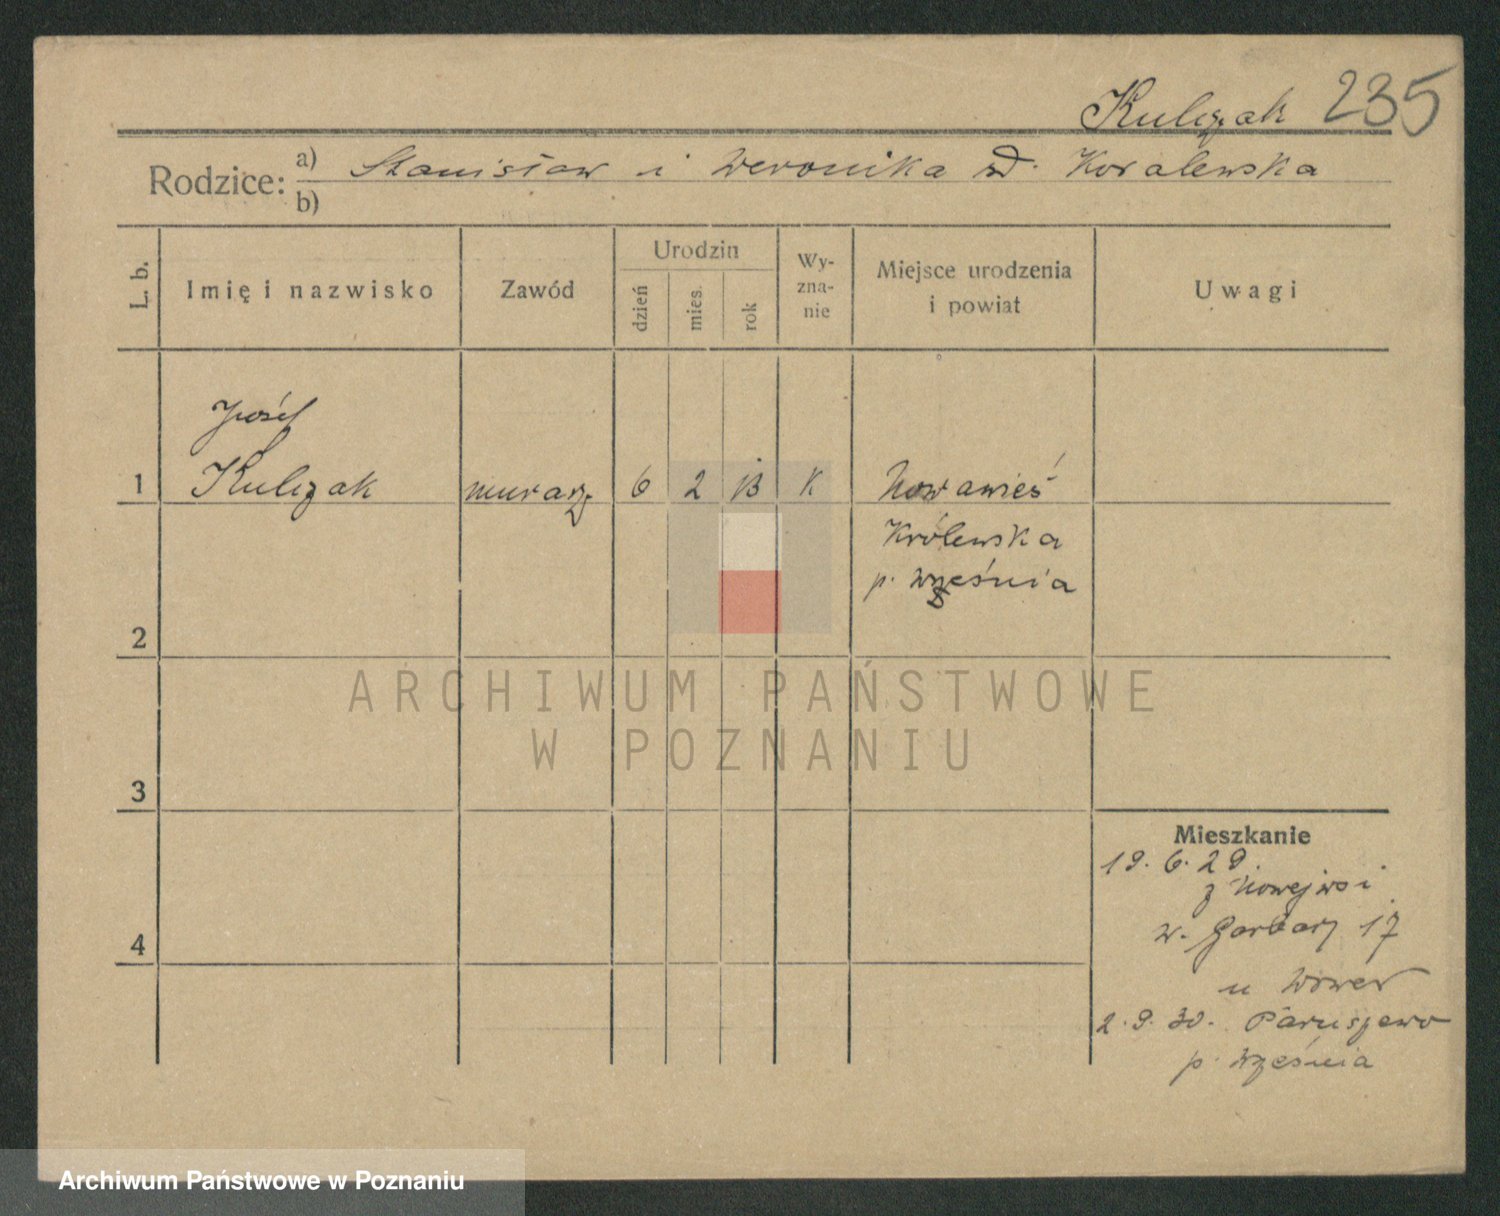 Kulczak 235
Rodzice: a) Stanisław i Weronika zd. Kowalewska
b)
L. b.
Imię i nazwisko
Zawód
Urodzin
dzień
mies.
rok
Wy-
zna-
nie
Miejsce urodzenia
i powiat
Uwagi
Józef
1 Kulczak murarz 6 2 13 K Nowawieś
Królewska
p. Września
2
3
4
Mieszkanie
19. 6. 29.
z Nowejwsi
w. Garbary 17
u
2. 9. 30. Paruszewo
p. Września
ARCHIWUM PAŃSTWOWE
W POZNANIU
Archiwum Państwowe w Poznaniu